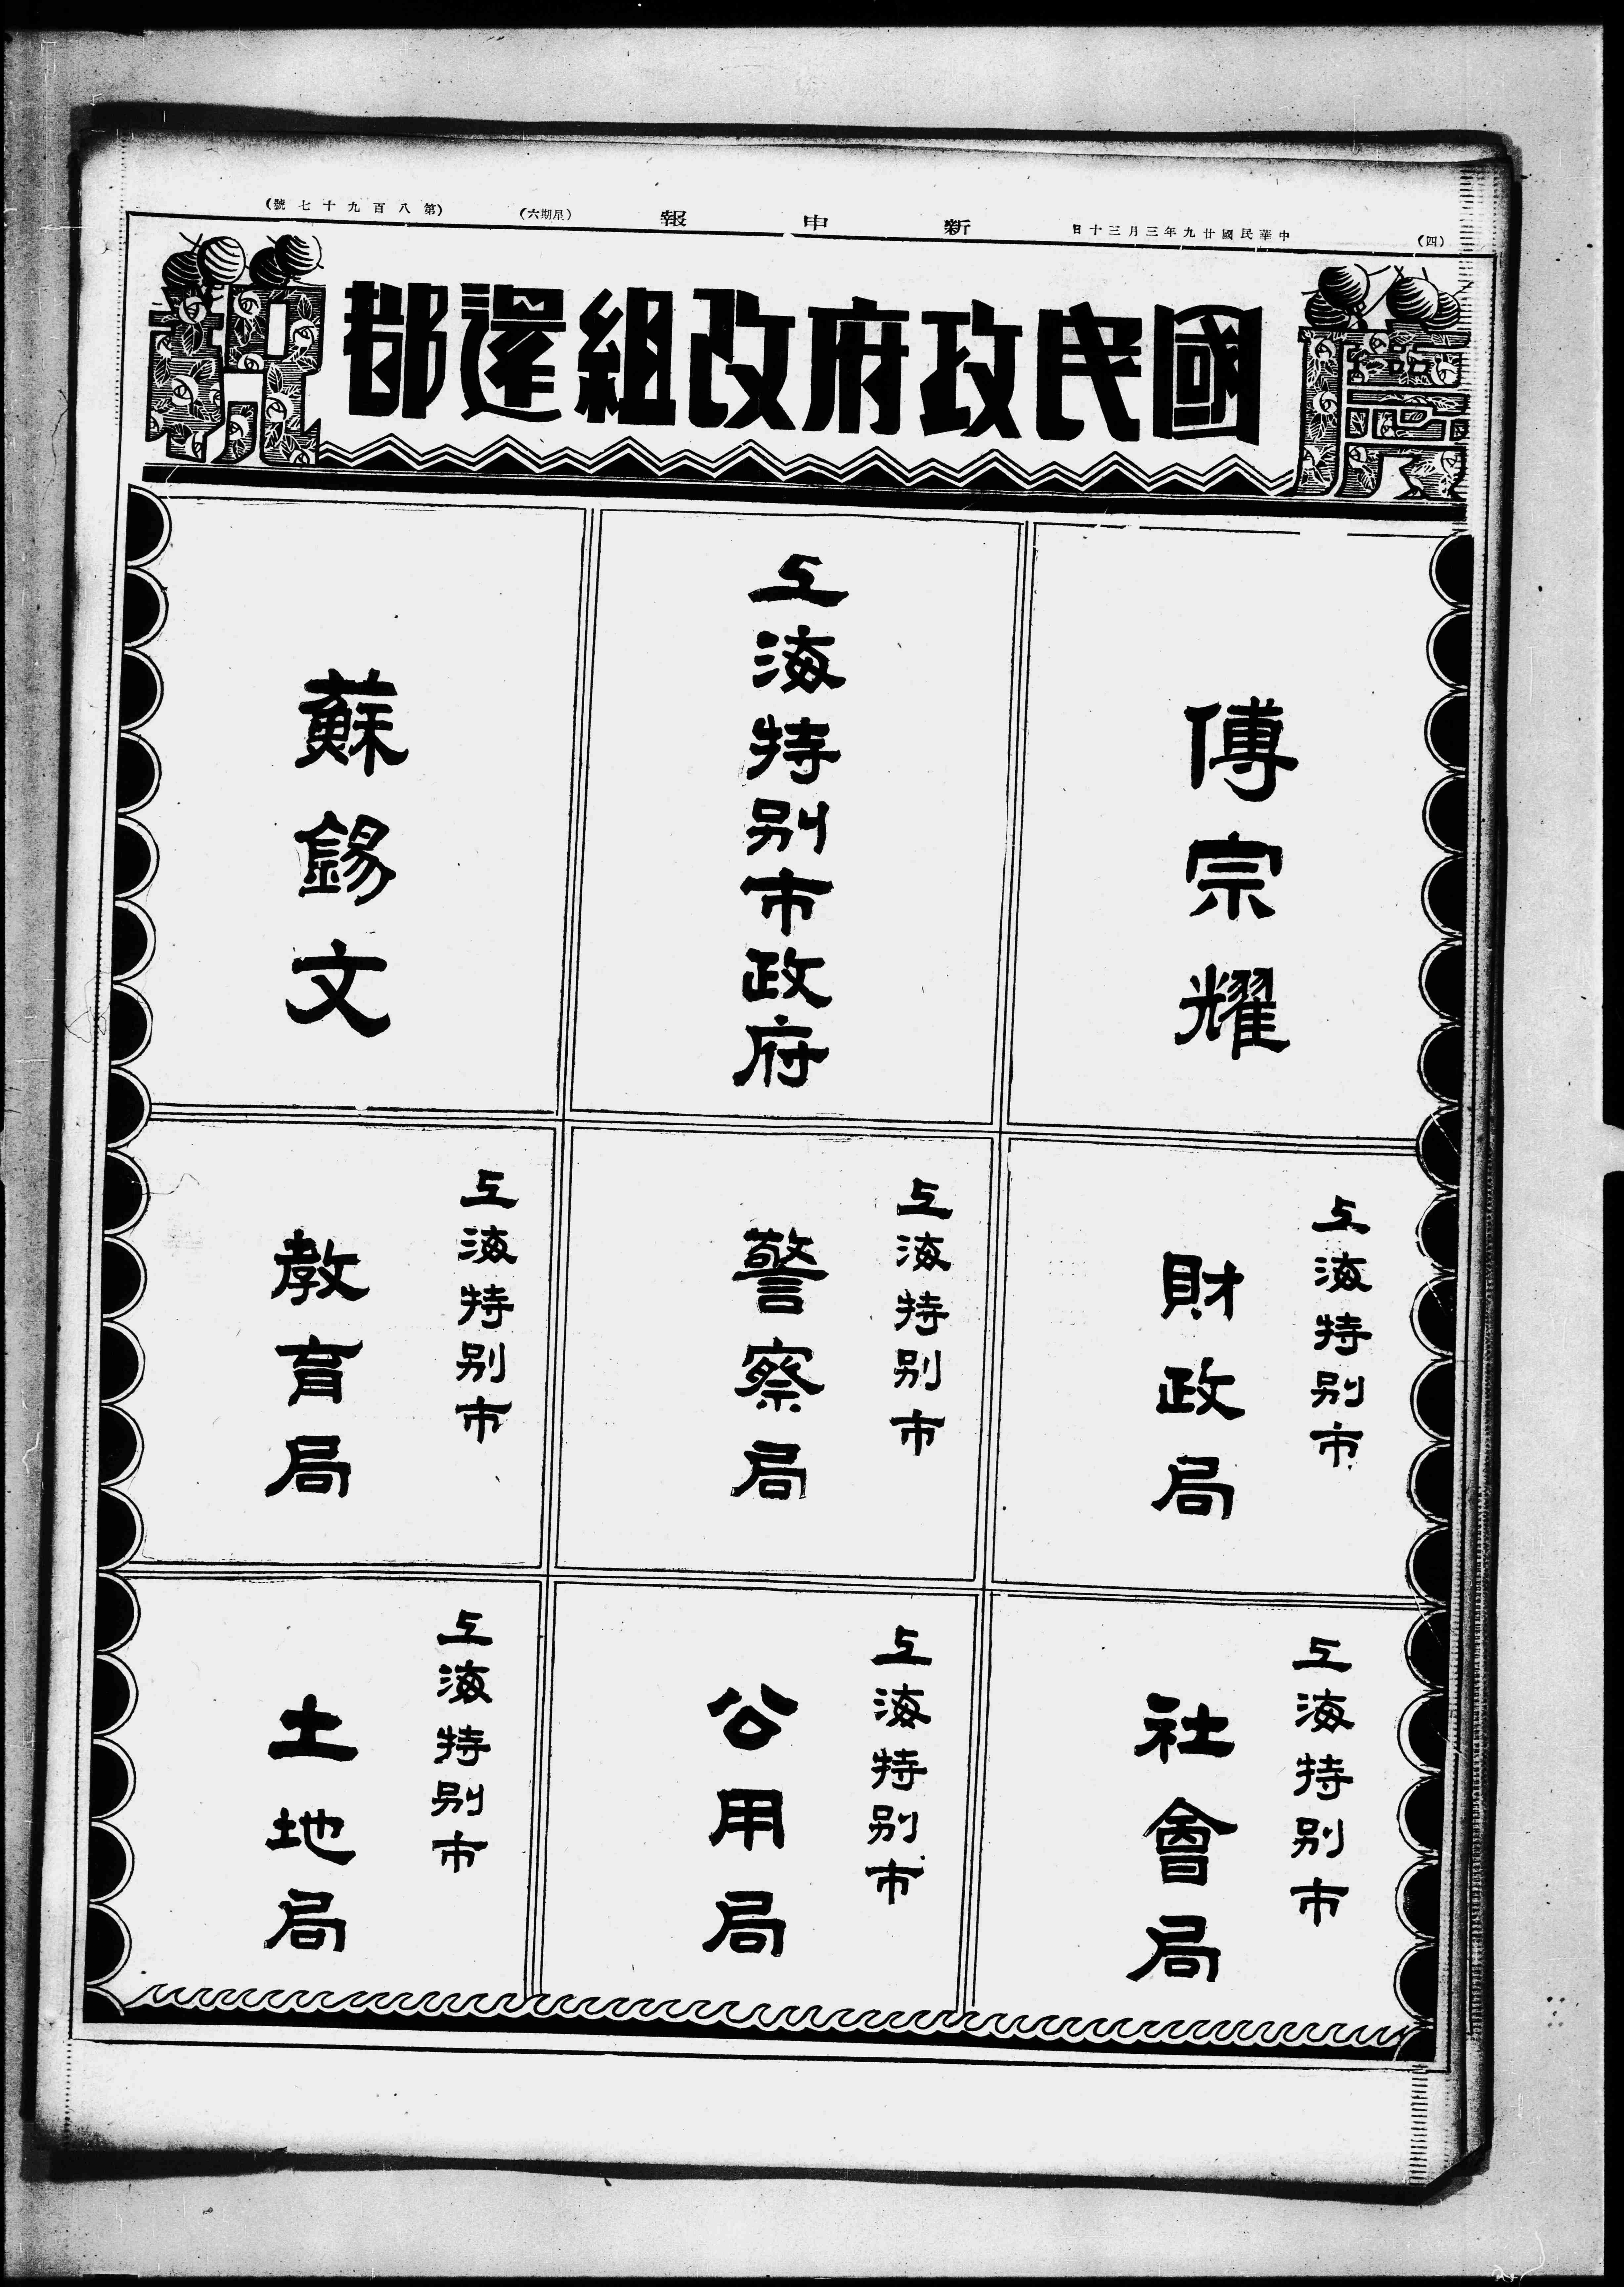 (四)
中華民國廿九年三月三十日
新申報
(星期六)
(第八百九十七號)
慶
國民政府改組還都
祝
傅宗耀
上海特别市政府
蘇錫文
上海特别市
財政局
上海特别市
警察局
上海特别市
教育局
上海特别市
社會局
上海特别市
公用局
上海特别市
土地局